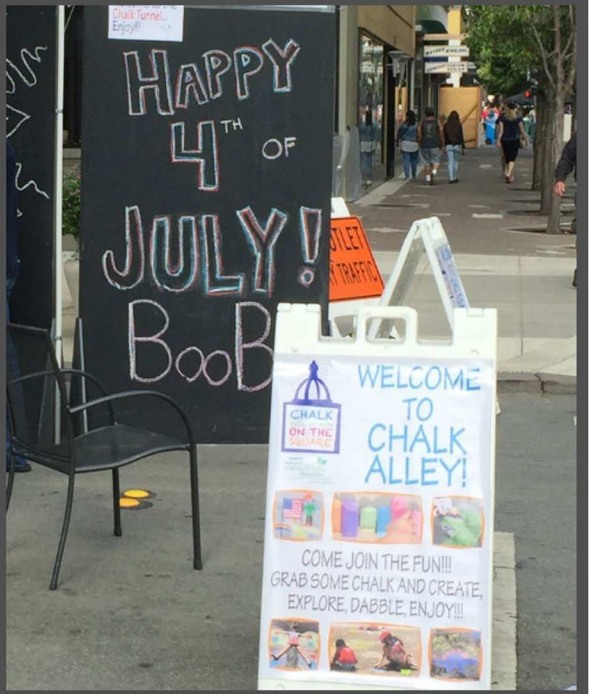 Chalk Tunnel...
Enjoy!!!
HAPPY
4TH OF
JULY!
BOOB
OUTLET
TRAFFIC
CHALK
ON THE
SQUARE
WELCOME
TO
CHALK
ALLEY!
COME JOIN THE FUN!!!
GRAB SOME CHALK AND CREATE,
EXPLORE, DABBLE, ENJOY!!!